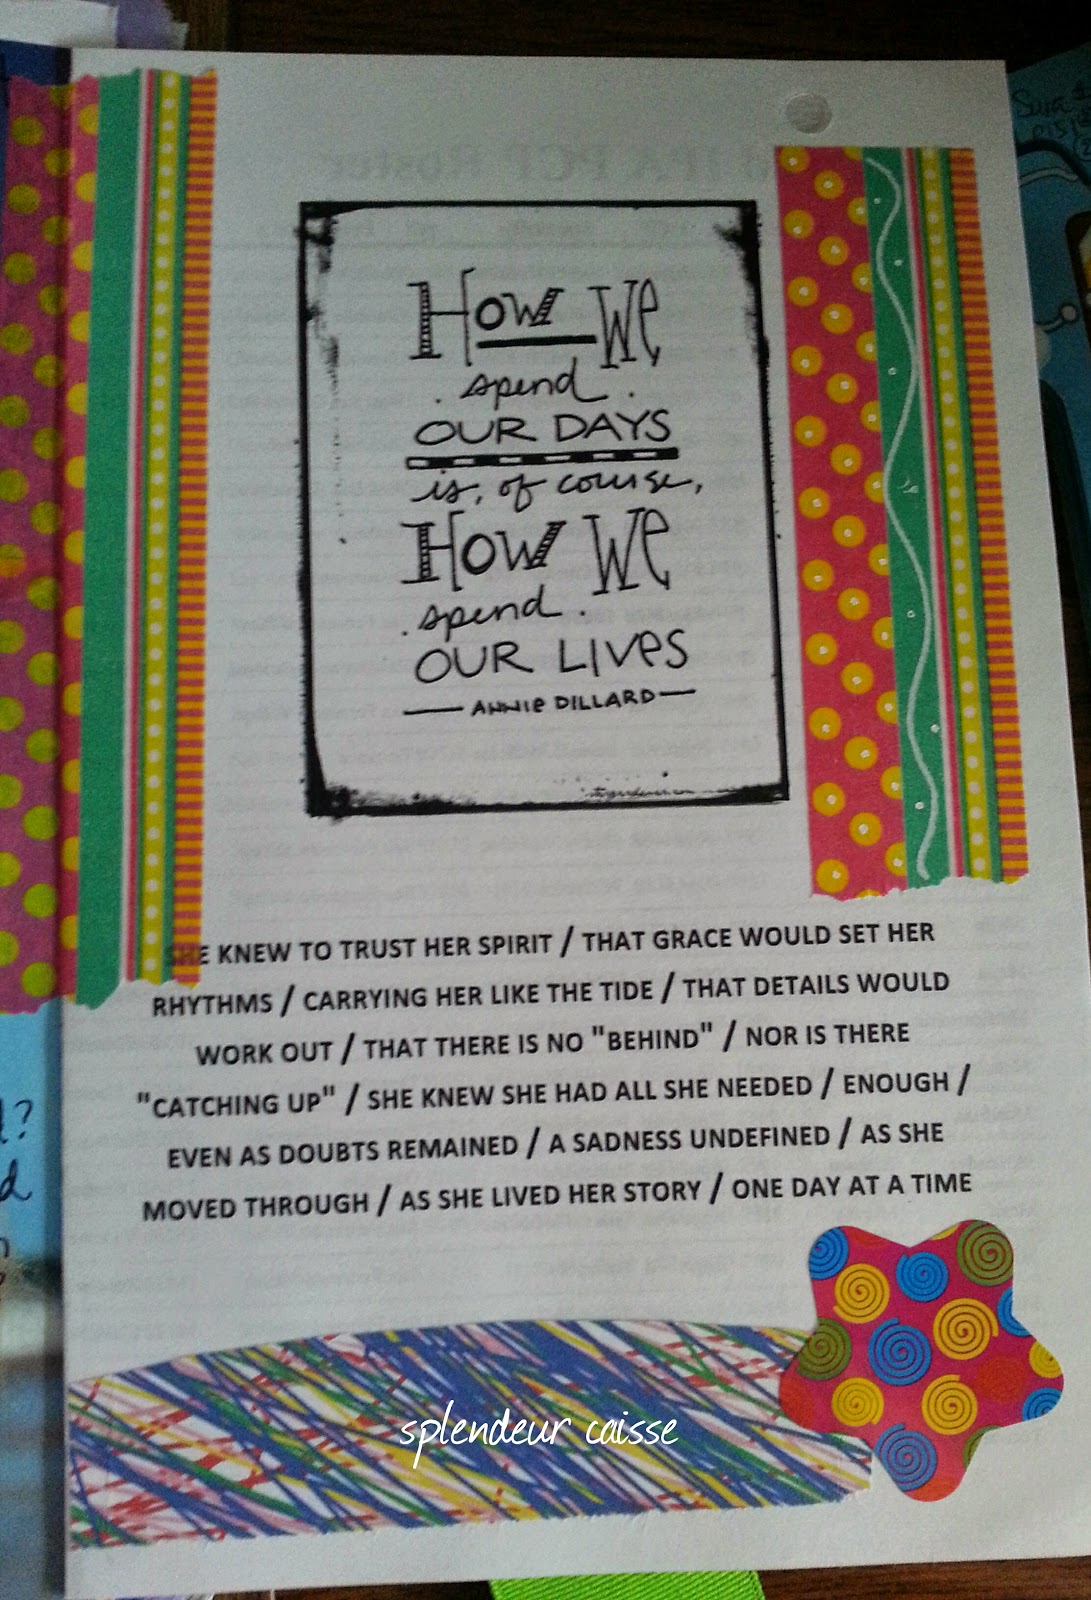 HOW WE
spend
OUR DAYS
is, of course,
HOW WE
spend
OUR LIVES
ANNIE DILLARD
SHE KNEW TO TRUST HER SPIRIT / THAT GRACE WOULD SET HER
RHYTHMS / CARRYING HER LIKE THE TIDE / THAT DETAILS WOULD
WORK OUT / THAT THERE IS NO "BEHIND" / NOR IS THERE
"CATCHING UP" / SHE KNEW SHE HAD ALL SHE NEEDED / ENOUGH /
EVEN AS DOUBTS REMAINED / A SADNESS UNDEFINED / AS SHE
MOVED THROUGH / AS SHE LIVED HER STORY / ONE DAY AT A TIME
splendeur caisse